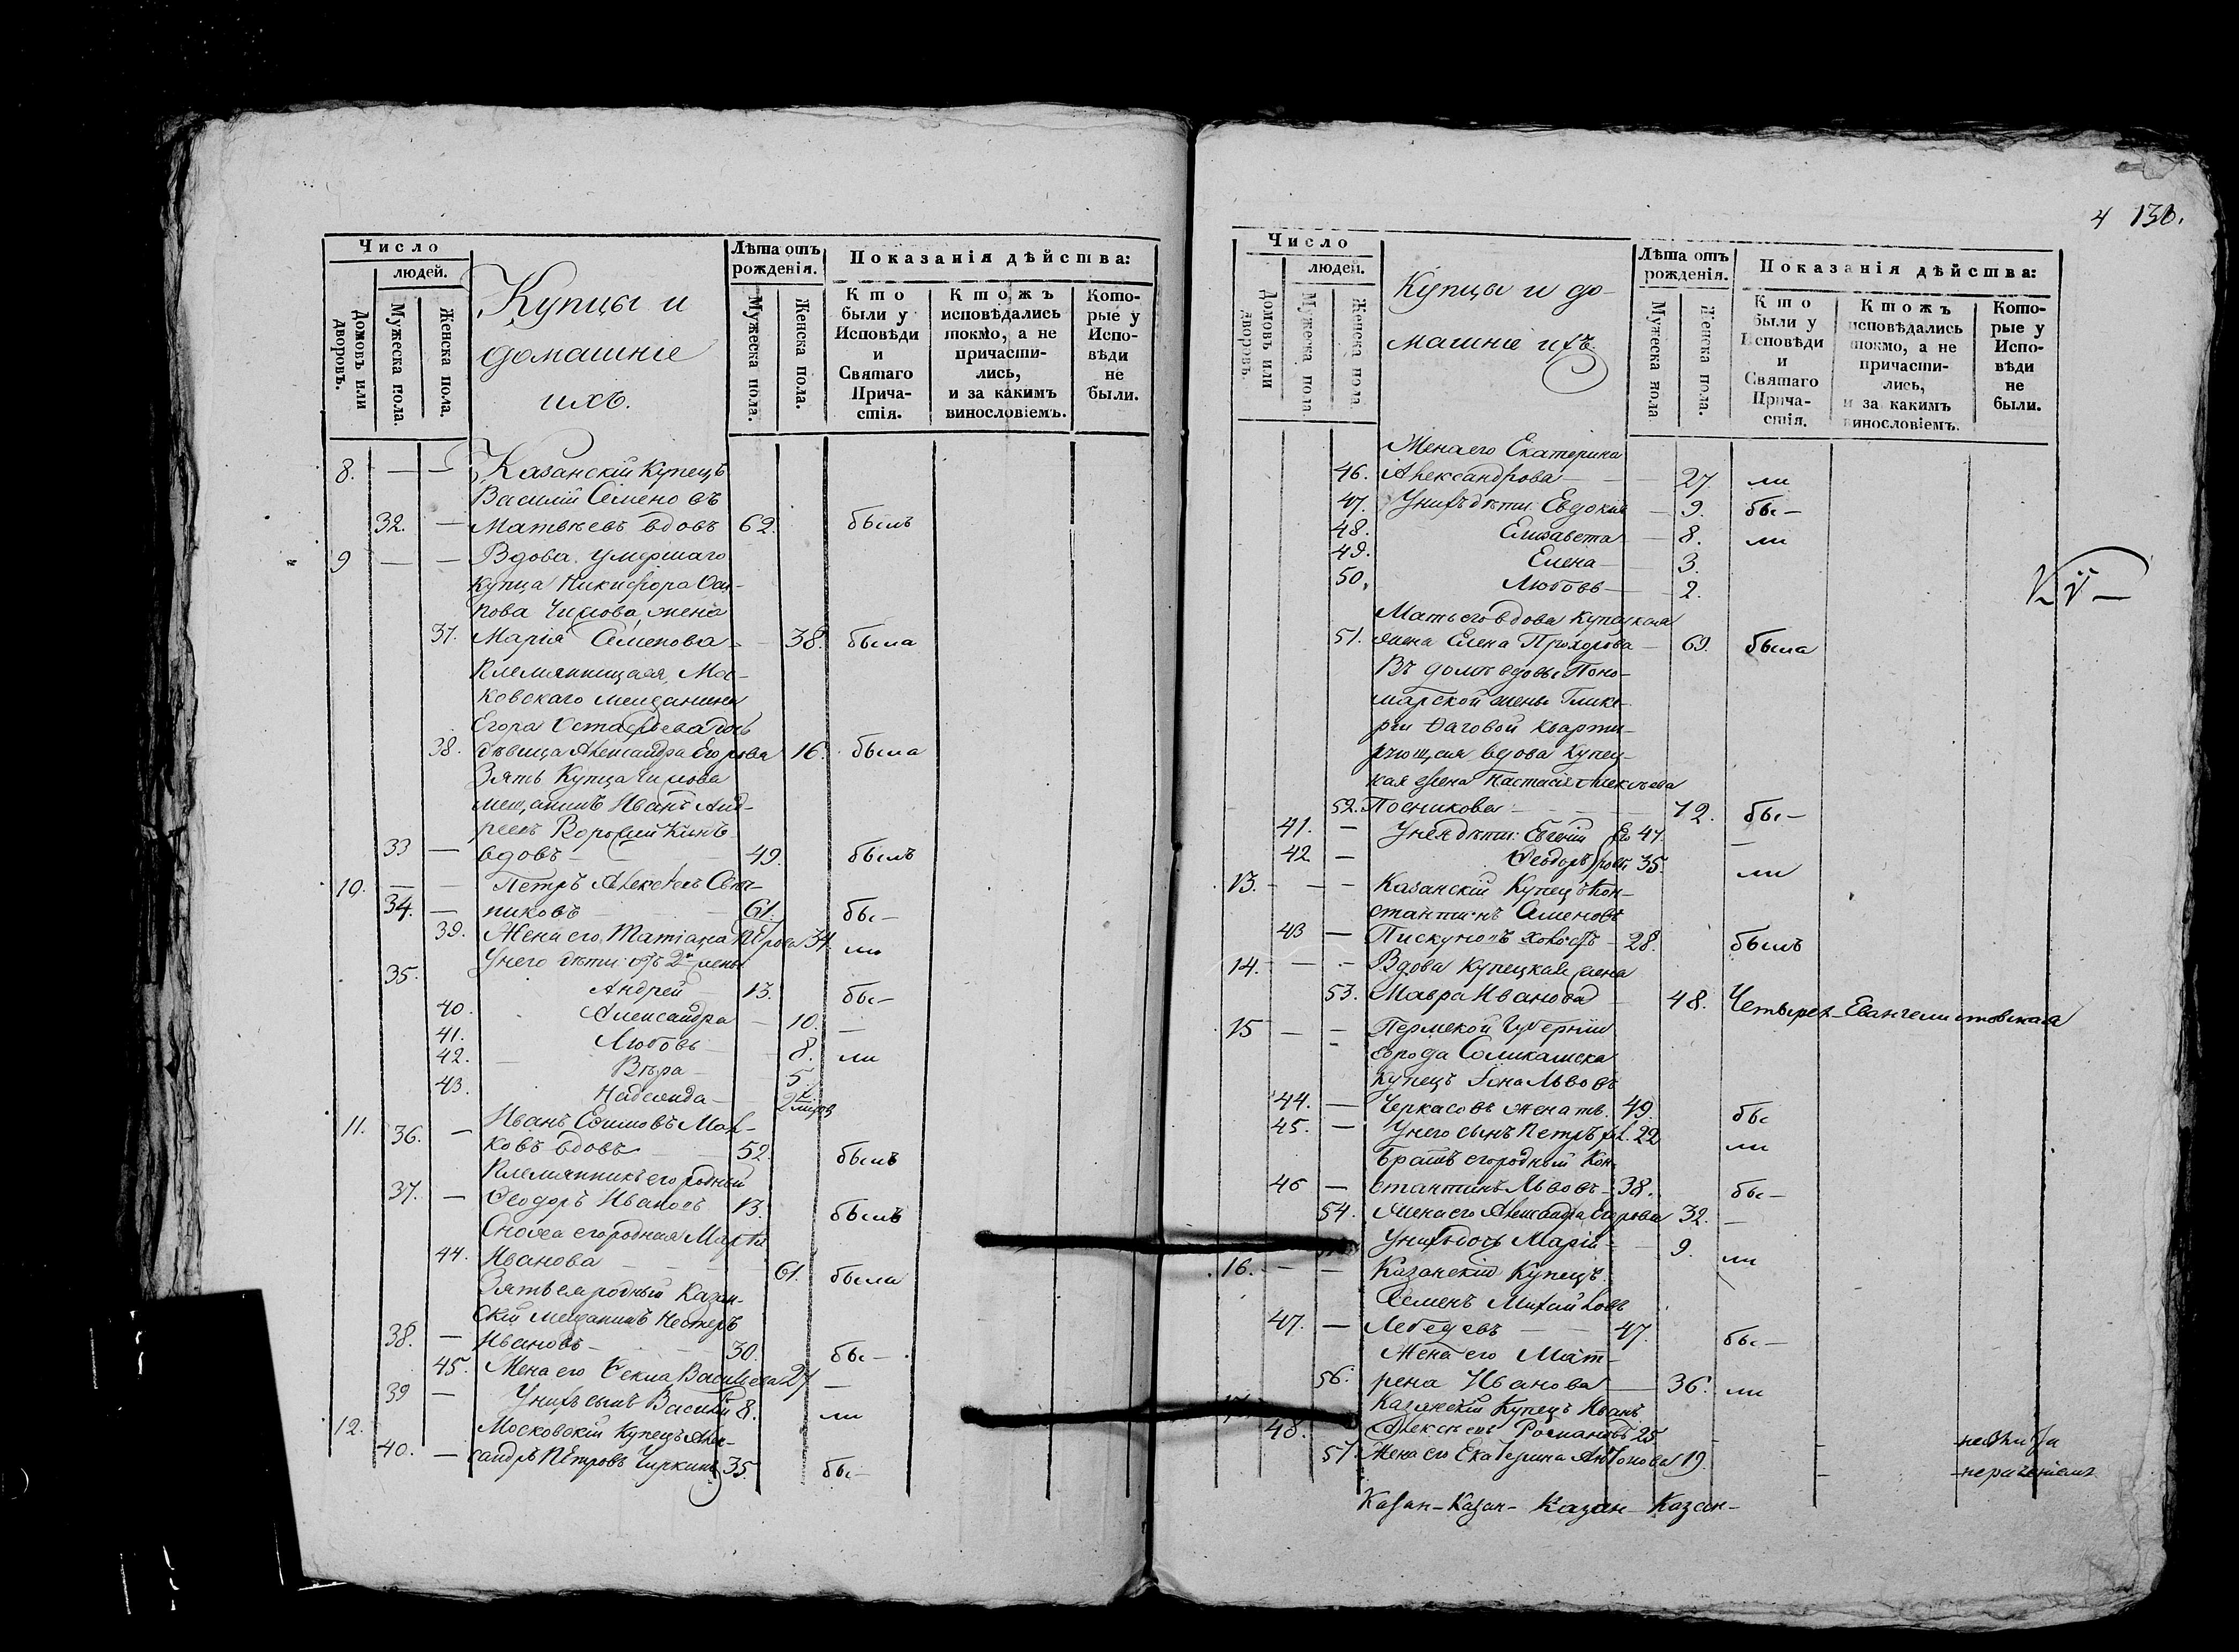 Число
людей.
Домовъ или дворовъ.
Мужеска пола.
Женска пола.
Купцы и
домашніе
ихъ.
Лѣта отъ рожденія.
Мужеска пола.
Женска пола.
Показанія дѣйства:
Кто были у Исповѣди и Святаго Причастія.
Ктожъ исповѣдались токмо, а не причастились, и за какимъ винословіемъ.
Которые у Исповѣди не были.
8. — — Казанскій Купецъ
Василій Семеновъ
32. — Матвѣевъ вдовъ 62. былъ
9 — — Вдова умершаго
купца Никифора Оси-
пова Чижова, жена
37. Марія Семенова — 38. была
Племянница ея, Мос-
ковскаго мещанина
Егора Остафьева дочь
38. дѣвица Александра Егорова 16. была
Зять Купца Чижова
мещанинъ Иванъ Анд-
реевъ
33 — вдовъ — 49. былъ
10. — — Петръ Алексѣевъ
34. — никовъ — 61. бы-
39. Жена его Татіана Петрова 34. ли
У него дѣти отъ 2й жены
35. Андрей — 13. бы-
40. Александра — 10. —
41. Любовь — 8. ли
42. — Вѣра — 5.
43. Надежда — 2
11. Иванъ Ефимовъ
36. — ковъ вдовъ — 52. былъ
Племянникъ его родный
37. — Ѳеодоръ Ивановъ 13. былъ
Сноха его родная Марѳа
44. Иванова — 61. была
Зять ея родный Казан-
скій мещанинъ Нестеръ
38. — Ивановъ — 30. бы-
45. Жена его Ѳекла Васильева 27 —
39 — У нихъ сынъ Василій 8. ли
12. Московскій Купецъ Алек-
40. — сандръ Петровъ Чиркинъ 35. бы-
4 130.
Число
людей.
Домовъ или дворовъ.
Мужеска пола.
Женска пола.
Купцы и до-
машніе ихъ.
Лѣта отъ рожденія.
Мужеска пола
Женска пола.
Показанія дѣйства:
Кто были у Исповѣди и Святаго Причастія.
Ктожъ исповѣдались токмо, а не причастились, и за какимъ винословіемъ.
Которые у Исповѣди не были.
Жена его Екатерина
46. Александрова — 27. ли
47. У нихъ дѣти: Евдокія — 9. бы-
48. Елизавета — 8. ли
49. Елена — 3.
50. Любовь — 2.
Мать его вдова купецкая
51. жена Елена Прохорова — 69. была
Въ домѣ вдовы Поно-
марской жены Глике-
ріи Даговой кварти-
рующая вдова купец-
кая жена Настасія Алексѣева
52. Посникова — 72. бы-
41. — У нея дѣти: Евгеній 47. —
42 — Ѳеодоръ 35. ли
13. — — Казанскій Купецъ Кон-
стантинъ Семеновъ
43 — Пискуновъ холостъ — 28. былъ
14. — — Вдова купецкая жена
53. Мавра Иванова 48. Четырех-Евангелистовская
15 — — Пермской Губерніи
города Соликамска
купецъ Іона Львовъ
44. — Черкасовъ женатъ. 49. бы
45. — У него сынъ Петръ хол. 22 ли
Братъ его родный Кон-
46 — стантинъ Львовъ — 38. бы-
54. Жена его Александра Егорова 32. —
У нихъ дочь Марія — 9. ли
16. — — Казанскій Купецъ
Семенъ Михайловъ
47. — Лебедевъ — 47. бы-
Жена его Мат-
56. рена Иванова — 36. ли
Казанскій Купецъ Иванъ
48. Алексѣевъ Романовъ 25
57. Жена его Екатерина Антонова 19.
нераченіемъ
Казан- Казан- Казан- Казан-